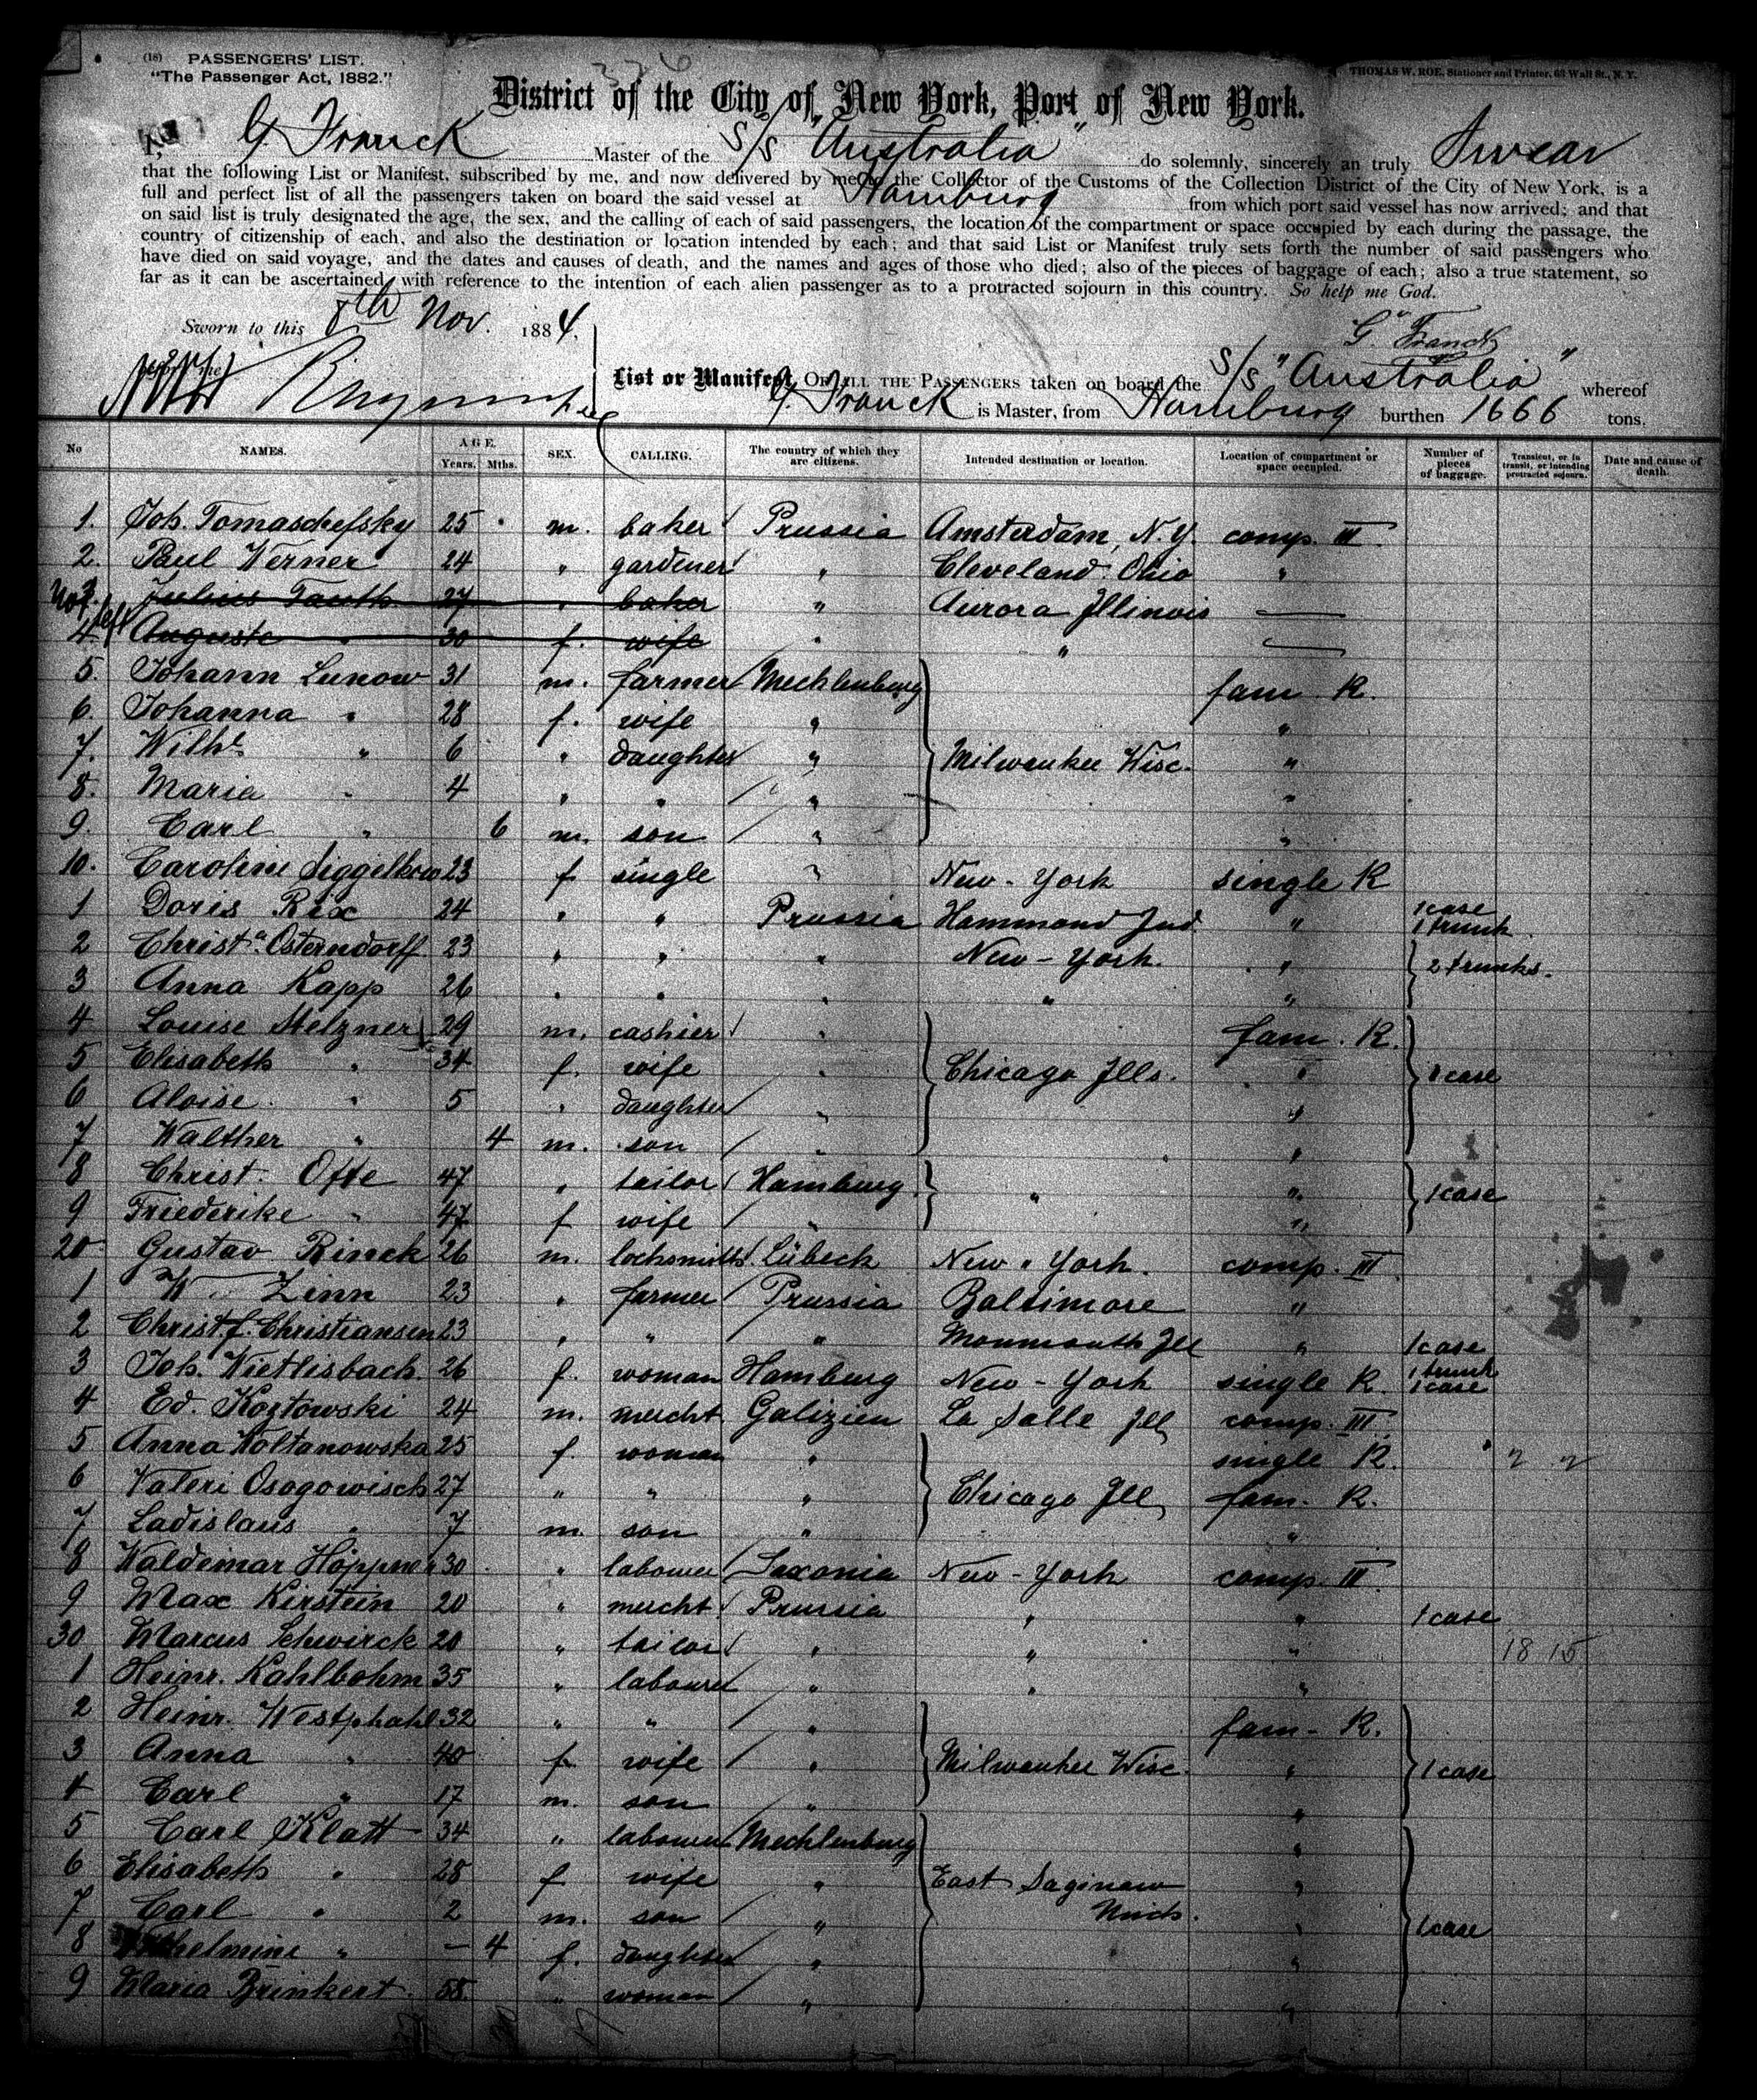 326
(18) PASSENGERS' LIST.
"The Passenger Act, 1882."
THOMAS W. ROE, Stationer and Printer, 63 Wall St., N. Y.
District of the City of New York, Port of New York.
I, G. Franck Master of the S/S "Australia" do solemnly, sincerely an truly Swear
that the following List or Manifest, subscribed by me, and now delivered by me to the Collector of the Customs of the Collection District of the City of New York, is a
full and perfect list of all the passengers taken on board the said vessel at Hamburg from which port said vessel has now arrived; and that
on said list is truly designated the age, the sex, and the calling of each of said passengers, the location of the compartment or space occupied by each during the passage, the
country of citizenship of each, and also the destination or location intended by each; and that said List or Manifest truly sets forth the number of said passengers who
have died on said voyage, and the dates and causes of death, and the names and ages of those who died; also of the pieces of baggage of each; also a true statement, so
far as it can be ascertained, with reference to the intention of each alien passenger as to a protracted sojourn in this country. So help me God.
Sworn to this 8th Nov. 1884.
G. Franck
List or Manifest, OF ALL THE PASSENGERS taken on board the S/S "Australia" whereof
G. Franck is Master, from Hamburg burthen 1666 tons.
No NAMES. AGE. Years. Mths. SEX. CALLING. The country of which they are citizens. Intended destination or location. Location of compartment or space occupied. Number of pieces of baggage. Transient, or in transit, or intending protracted sojourn. Date and cause of death.
1. Joh. Tomaschefsky 25 m. baker Prussia Amsterdam, N.Y. comp. III
2. Paul Werner 24 " gardener " Cleveland Ohio "
Not left
3. Julius Tauth 27 " baker " Aurora Illinois —
4. Auguste " 30 f. wife " " —
5. Johann Lunow 31 m. farmer Mecklenburg fam. R.
6. Johanna " 28 f. wife " "
7. Wilhe " 6 " daughter " Milwaukee Wisc. "
8. Maria " 4 " " " "
9. Carl " 6 m. son " "
10. Caroline Siggelkow 23 f single " New-York single R
1 Doris Rix 24 " " Prussia Hammond Ind. " 1 case 1 trunk
2 Christa. Osterndorff 23 " " " New-York. " 2 trunks.
3 Anna Kapp 26 " " " " "
4 Louise Stelzner 29 m. cashier " fam. R.
5 Elisabeth " 34 f. wife " Chicago Ills. " 1 case
6 Aloise " 5 " daughter " "
7 Walther " 4 m. son " "
8 Christ. Ofte 47 " tailor Hamburg " " 1 case
9 Friederike " 47 f wife " "
20 Gustav Rinck 26 m. locksmith Lübeck New-York. comp. III
1 W. Zinn 23 " farmer Prussia Baltimore "
2 Christ. f. Christiansen 23 " " " Monmouth Ill " 1 case
3 Joh. Wietlisbach. 26 f. woman Hamburg New-York single R. 1 trunk 1 case
4 Ed. Koztowski 24 m. mercht Galizien La Salle Ill comp. III
5 Anna Woltanowska 25 f. woman " single R.
6 Valeri Osogowisch 27 " " " Chicago Ill fam. R.
7 Ladislaus " 7 m. son " "
8 Waldemar Höppner 30 " labourer Saxonia New-York comp. III
9 Max Kirstein 20 " mercht. Prussia " " 1 case
30 Marcus Schwirck 20 " tailor " " " 18 15
1 Heinr. Kahlbohm 35 " labourer " " "
2 Heinr. Westphahl 32 " " " fam. R.
3 Anna " 40 f. wife " Milwaukee Wisc. " 1 case
4 Carl " 17 m. son " "
5 Carl Klatt 34 " labourer Mecklenburg "
6 Elisabeth " 28 f wife " East Saginaw "
7 Carl " 2 m. son " Mich. " 1 case
8 Wilhelmine " — 4 f. daughter " "
9 Maria Brinkert 58 " woman " "